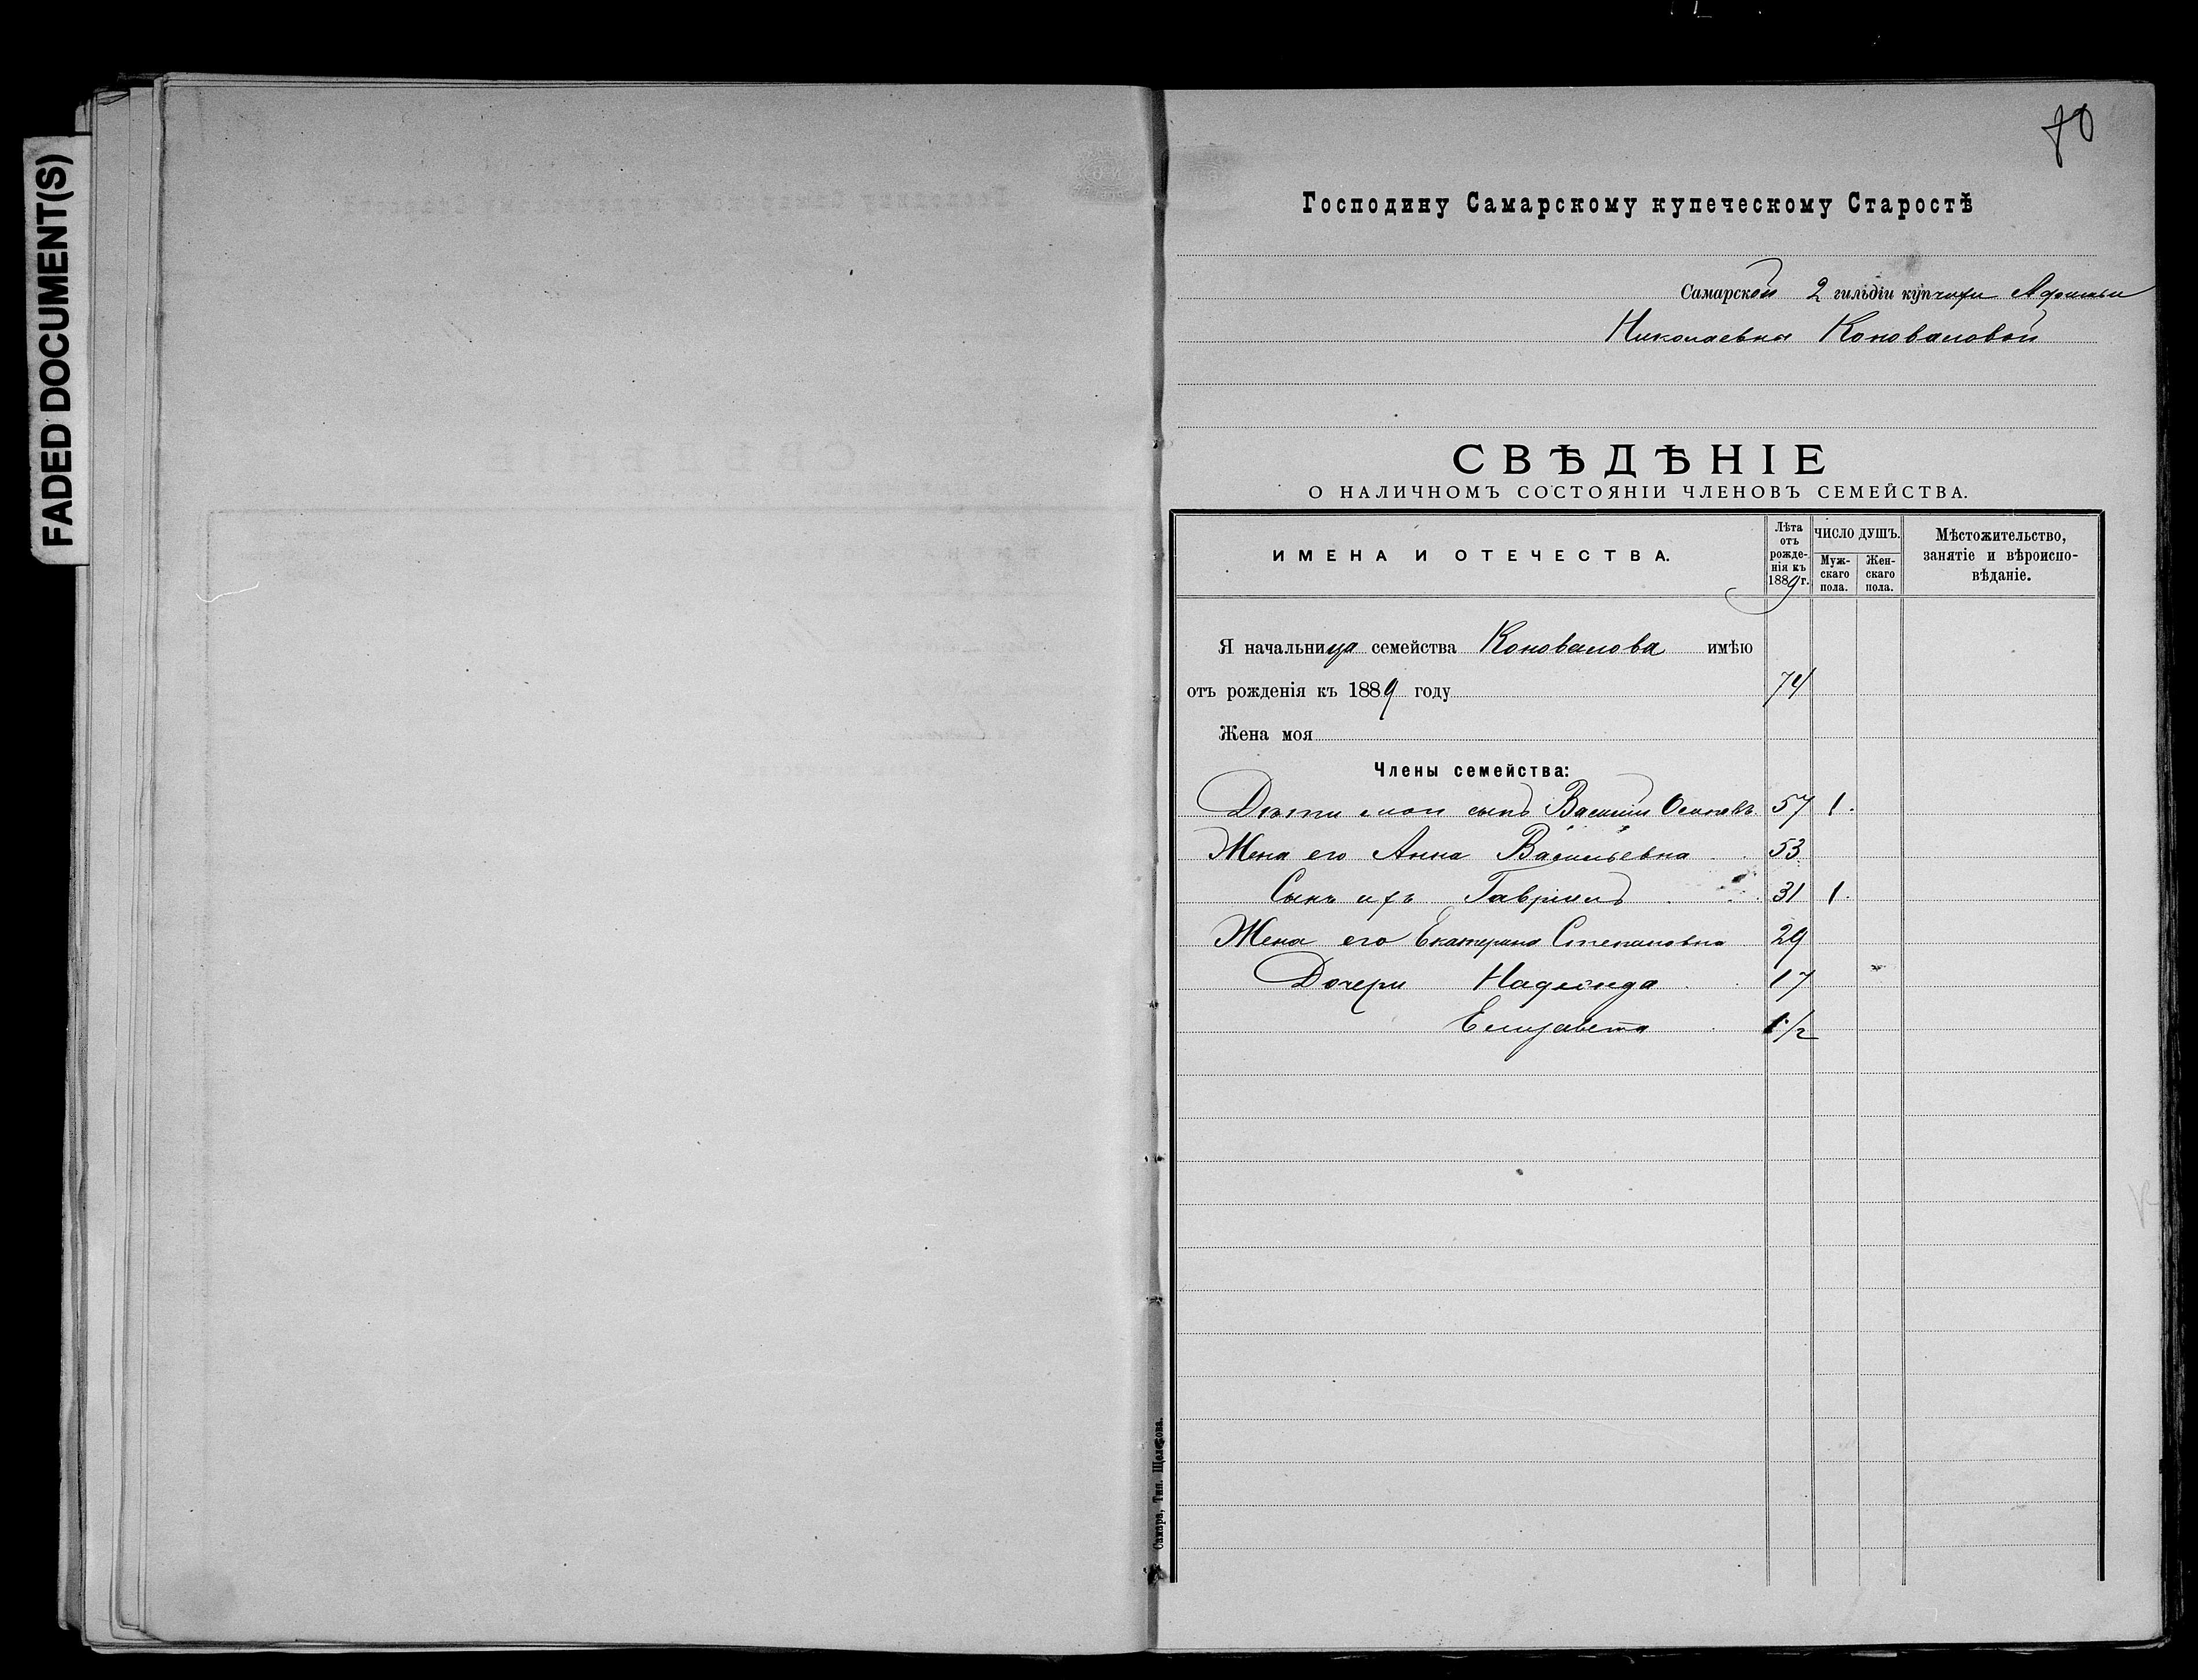 FADED DOCUMENT(S)
70
Господину Самарскому купеческому Старостѣ
Самарской 2 гильдіи купчихи Афимьи
Николаевны Коноваловой
СВѢДѢНІЕ
О НАЛИЧНОМЪ СОСТОЯНІИ ЧЛЕНОВЪ СЕМЕЙСТВА.
ИМЕНА И ОТЕЧЕСТВА.
Лѣта отъ рожденія къ 1889 г.
ЧИСЛО ДУШЪ.
Мужскаго пола.
Женскаго пола.
Мѣстожительство, занятіе и вѣроисповѣданіе.
Я начальница семейства Коновалова имѣю
отъ рожденія къ 1889 году 74
Жена моя
Члены семейства:
Дѣти мои сынъ Василій Осиповъ 57 1.
Жена его Анна Васильевна 53
Сынъ ихъ Гавріилъ 31 1.
Жена его Екатерина Степановна 29
Дочери Надежда 17
Елизавета 1/2
Самара, Тип. Щелокова.